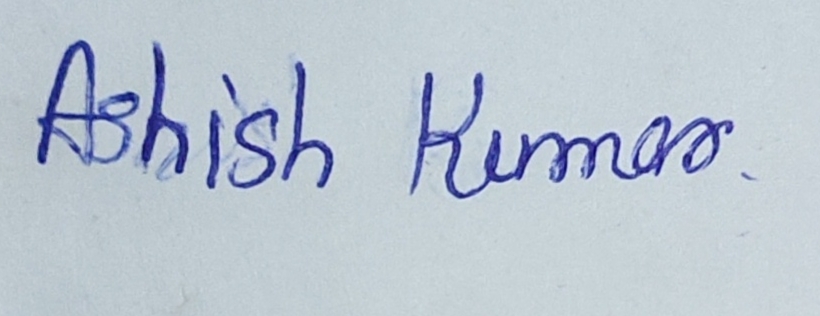 Ashish Kumar.